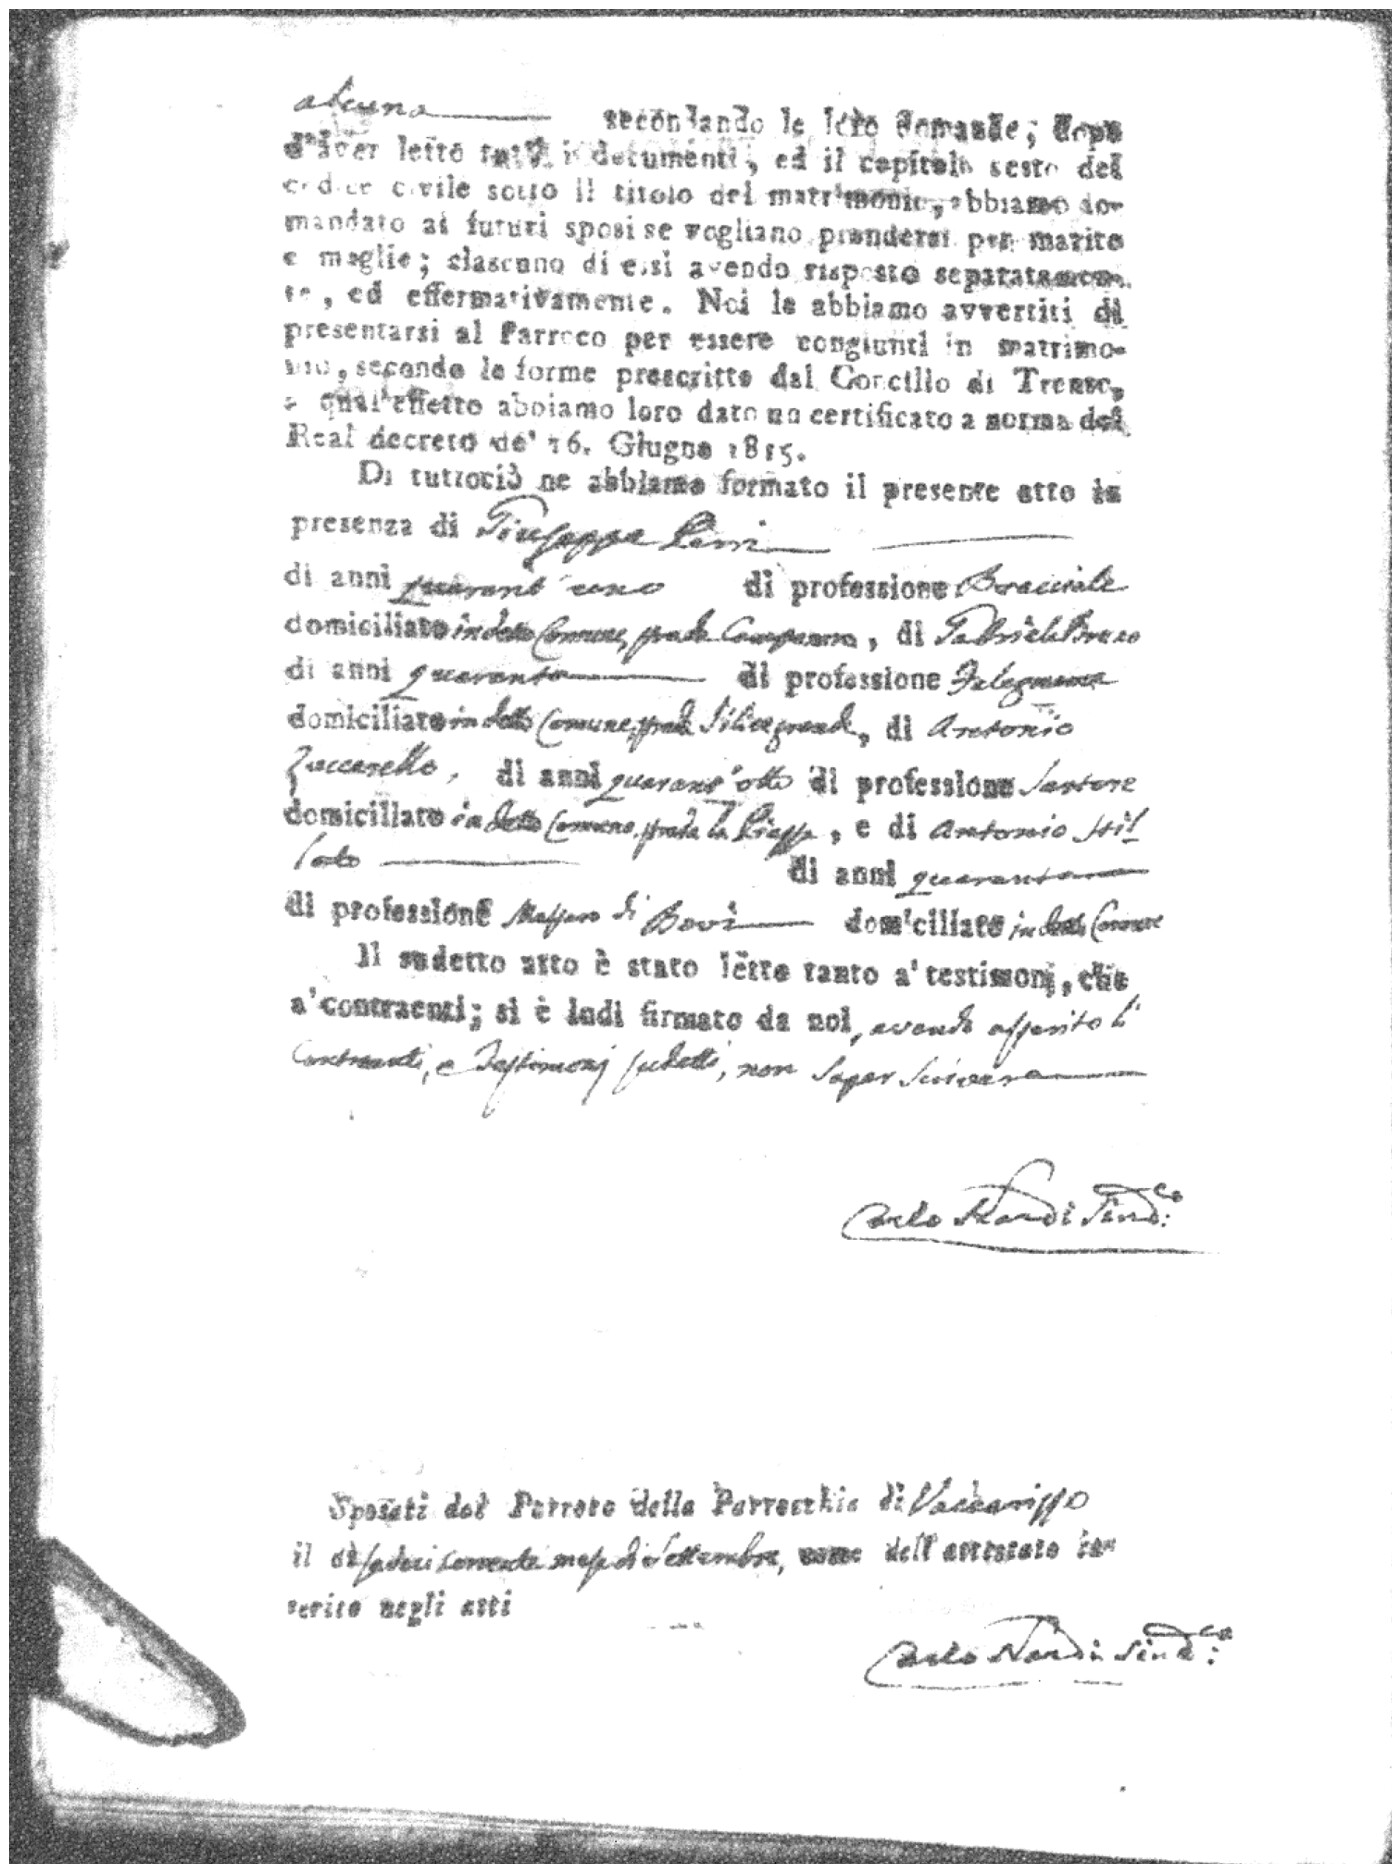 alcuno secondando le loro domande; dopo
d'aver letto tutt' i documenti, ed il capitolo sesto del
codice civile sotto il titolo del matrimonio, abbiamo do-
mandato ai futuri sposi se vogliano prendersi per marito
e moglie; ciascuno di essi avendo risposto separatamen-
te, ed effermativamente. Noi le abbiamo avvertiti di
presentarsi al Parroco per essere congiunti in matrimo-
nio, secondo le forme prescritte dal Concilio di Trento,
a qual'effetto abbiamo loro dato un certificato a norma del
Real decreto de' 16. Giugno 1815.
Di tuttociò ne abbiamo formato il presente atto in
presenza di Giuseppe
di anni quarant'uno di professione Bracciale
domiciliato in detto Comune, strada Campanaro, di Gabriele Bruno
di anni quaranta di professione Falegname
domiciliato in detto Comune, strada , di Antonio
Zuccarello, di anni quarant'otto di professione Sartore
domiciliato in detto Comune, strada la Piazza, e di Antonio Stil
lato di anni quaranta
di professione Massaro di Bovi domiciliato in detto Comune
Il sudetto atto è stato letto tanto a' testimonj, che
a' contraenti; si è indi firmato da noi, avendo asserito li
Contraenti, e Testimonj sudetti, non saper scrivere
Carlo Nardi Sind.co
Sposati dal Parroco della Parrocchia di Vaccarizzo
il dì sedeci corrente mese di Settembre, come dell'attestato in-
serito negli atti
Carlo Nardi Sind.co